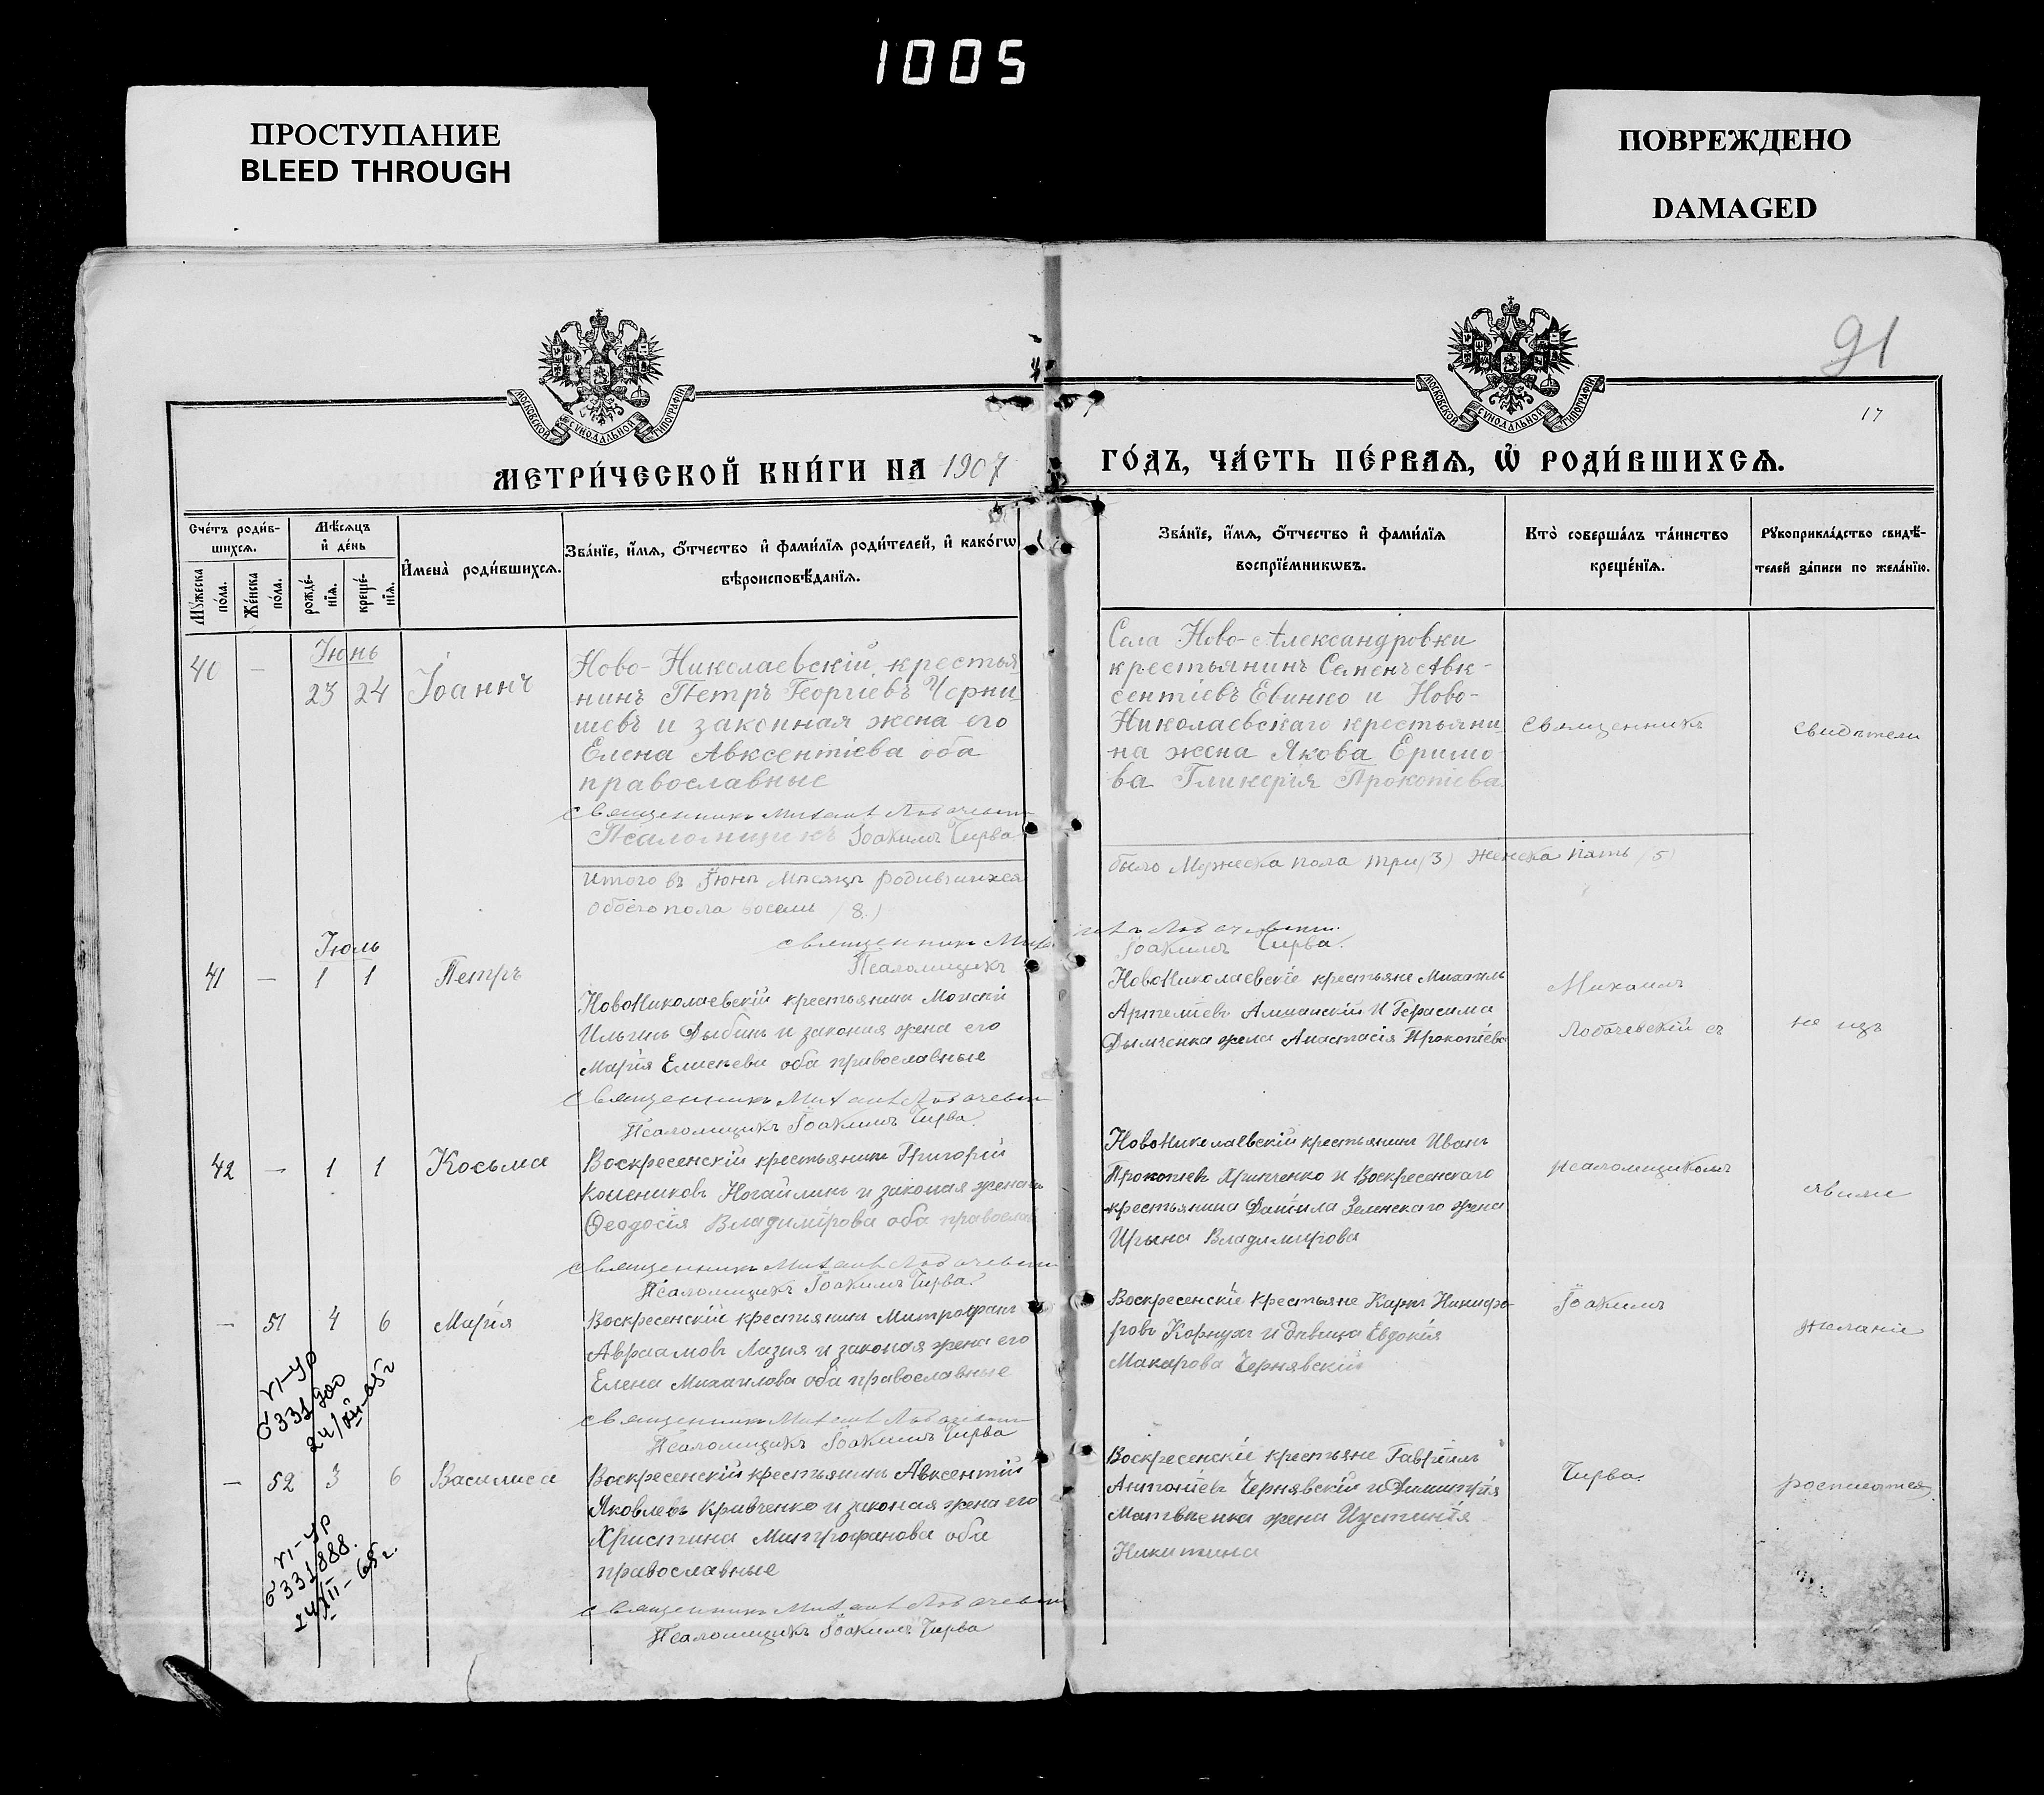 1005
ПРОСТУПАНИЕ
BLEED THROUGH
ПОВРЕЖДЕНО
DAMAGED
91
17
МОСКОВСКОЙ СѴНОДАЛЬНОЙ ТИПОГРАФІИ
МОСКОВСКОЙ СѴНОДАЛЬНОЙ ТИПОГРАФІИ
МЕТРИ́ЧЕСКОЙ КНИ́ГИ НА 1907
ГО́ДЪ, ЧА́СТЬ ПЕ́РВАѦ, Ѿ РОДИ́ВШИХСѦ.
Сче́тъ роди́в-
шихсѧ.
Мѣ́сѧцъ
и҆ де́нь
И҆мена̀ роди́вшихсѧ.
Зва́нїе, и҆́мѧ, о҆́тчество и҆ фами́лїѧ роди́телей, и҆ како́гѡ
вѣроисповѣ́данїѧ.
Мꙋ́жеска
по́ла.
Же́нска
по́ла.
рожде́-
нїѧ.
креще́-
нїѧ.
Зва́нїе, и҆́мѧ, о҆́тчество и҆ фами́лїѧ
воспрїе́мникѡвъ.
Кто̀ соверша́лъ та́инство
креще́нїѧ.
Рꙋкоприкла́дство свидѣ́-
телей за́писи по жела́нїю.
Іюнь
40 - 23 24 Іоаннъ
Ново-Николаевскій крестья
нинъ Петръ Георгіевъ Черни
шевъ и законная жена его
Елена Авксентіева оба
православные
священникъ Михаилъ Лобачевскій
Псаломщикъ Іоакимъ Чирва
Села Ново-Александровки
крестьянинъ Семенъ Авк-
сентіевъ Евинко и Ново-
Николаевскаго крестьяни
на жена Якова
ва Гликерія Прокопіева
Священникъ
Свидѣтели
Итого въ Іюнѣ Мѣсяцѣ родившихся
обоего пола восемь (8)
было Мужеска пола три (3) Женска пять (5)
священникъ Михаилъ Лобачевскій
Псаломщикъ Іоакимъ Чирва
Іюль
41 — 1 1 Петръ
НовоНиколаевскій крестьянинъ
Ильинъ Дыбинъ и законая жена его
Марія оба православные
священникъ Михаилъ Лобачевскій
Псаломщикъ Іоакимъ Чирва
НовоНиколаевскіе крестьяне Михаилъ
и Герасима
жена Анастасія Прокопіева
Михаилъ
Лобачевскій съ
не изъ
42 — 1 1 Косьма
Воскресенскій крестьянинъ Григорій
и законая жена
Ѳеодосія Владимірова оба православ
священникъ Михаилъ Лобачевскій
Псаломщикъ Іоакимъ Чирва
НовоНиколаевскій крестьянинъ Иванъ
Прокопіевъ и Воскресенскаго
крестьянина Даніила Зелинскаго жена
Ирына Владимирова
псаломщикомъ
явили
— 51 4 6 Марія
Воскресенскій крестьянинъ Митрофанъ
Авраамовъ и законая жена его
Елена Михаилова оба православные
священникъ Михаилъ Лобачевскій
Псаломщикъ Іоакимъ Чирва
Воскресенскіе крестьяне Карпъ Никифо-
ровъ и дѣвица Евдокія
Макарова Чернявскій
Іоакимъ
желаніе
VI-УР
331900
— 52 3 6 Василиса
Воскресенскій крестьянинъ Авксентій
Яковлевъ Кривченко и законая жена его
Христина Митрофанова оба
православные
священникъ Михаилъ Лобачевскій
Псаломщикъ Іоакимъ Чирва
Воскресенскіе крестьяне Гавріилъ
Антоніевъ Чернявскій и Димитрія
Матвіенка жена Иустинія
Никитина
Чирва
VI-УР
331888.
24/XII-65г.